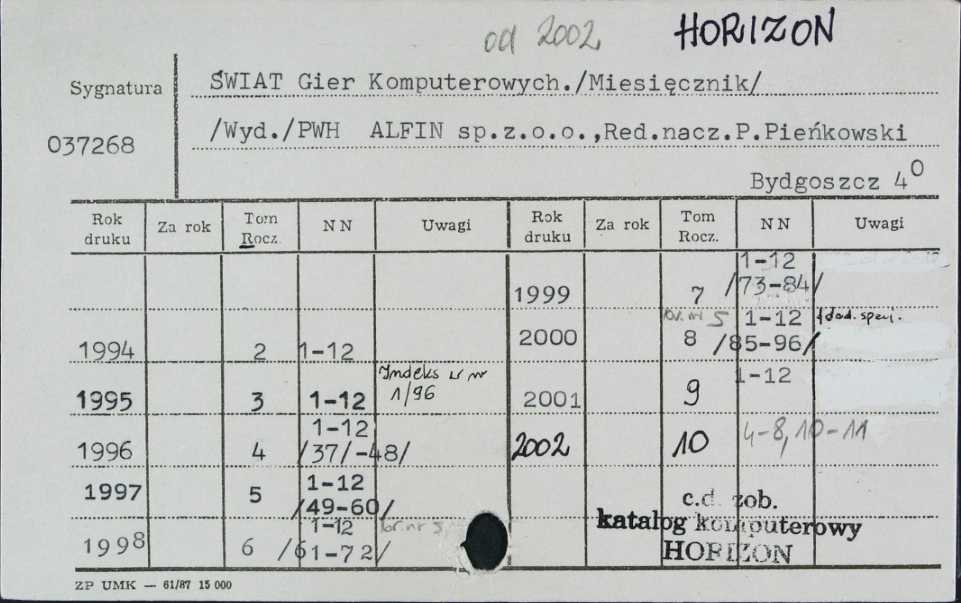 od 2002 HORIZON
Sygnatura ŚWIAT Gier Komputerowych./Miesięcznik/
037268 /Wyd./PWH ALFIN sp.z.o.o.,Red.nacz.P.Pieńkowski
Bydgoszcz 4⁰
Rok druku Za rok Tom Rocz. NN Uwagi Rok druku Za rok Tom Rocz. NN Uwagi
1999 7 1-12 /73-84/
1994 2 1-12 2000 br. nr 5 8 1-12 /85-96/ +dod. specj.
1995 3 1-12 Indeks w nr 1/96 2001 9 1-12
1996 4 1-12 /37/-48/ 2002 10 4-8, 10-11
1997 5 1-12 /49-60/ c.d. zob.
1998 6 1-12 /61-72/ br. nr katalog komputerowy
HORIZON
ZP UMK — 61/87 15 000